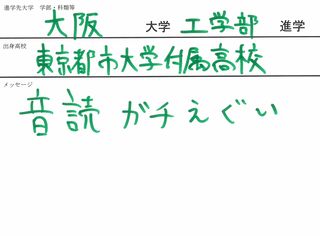 進学先大学 学部・科類等
大阪 大学 工学部 進学
出身高校
東京都市大学付属高校
メッセージ
音読 ガチえぐい